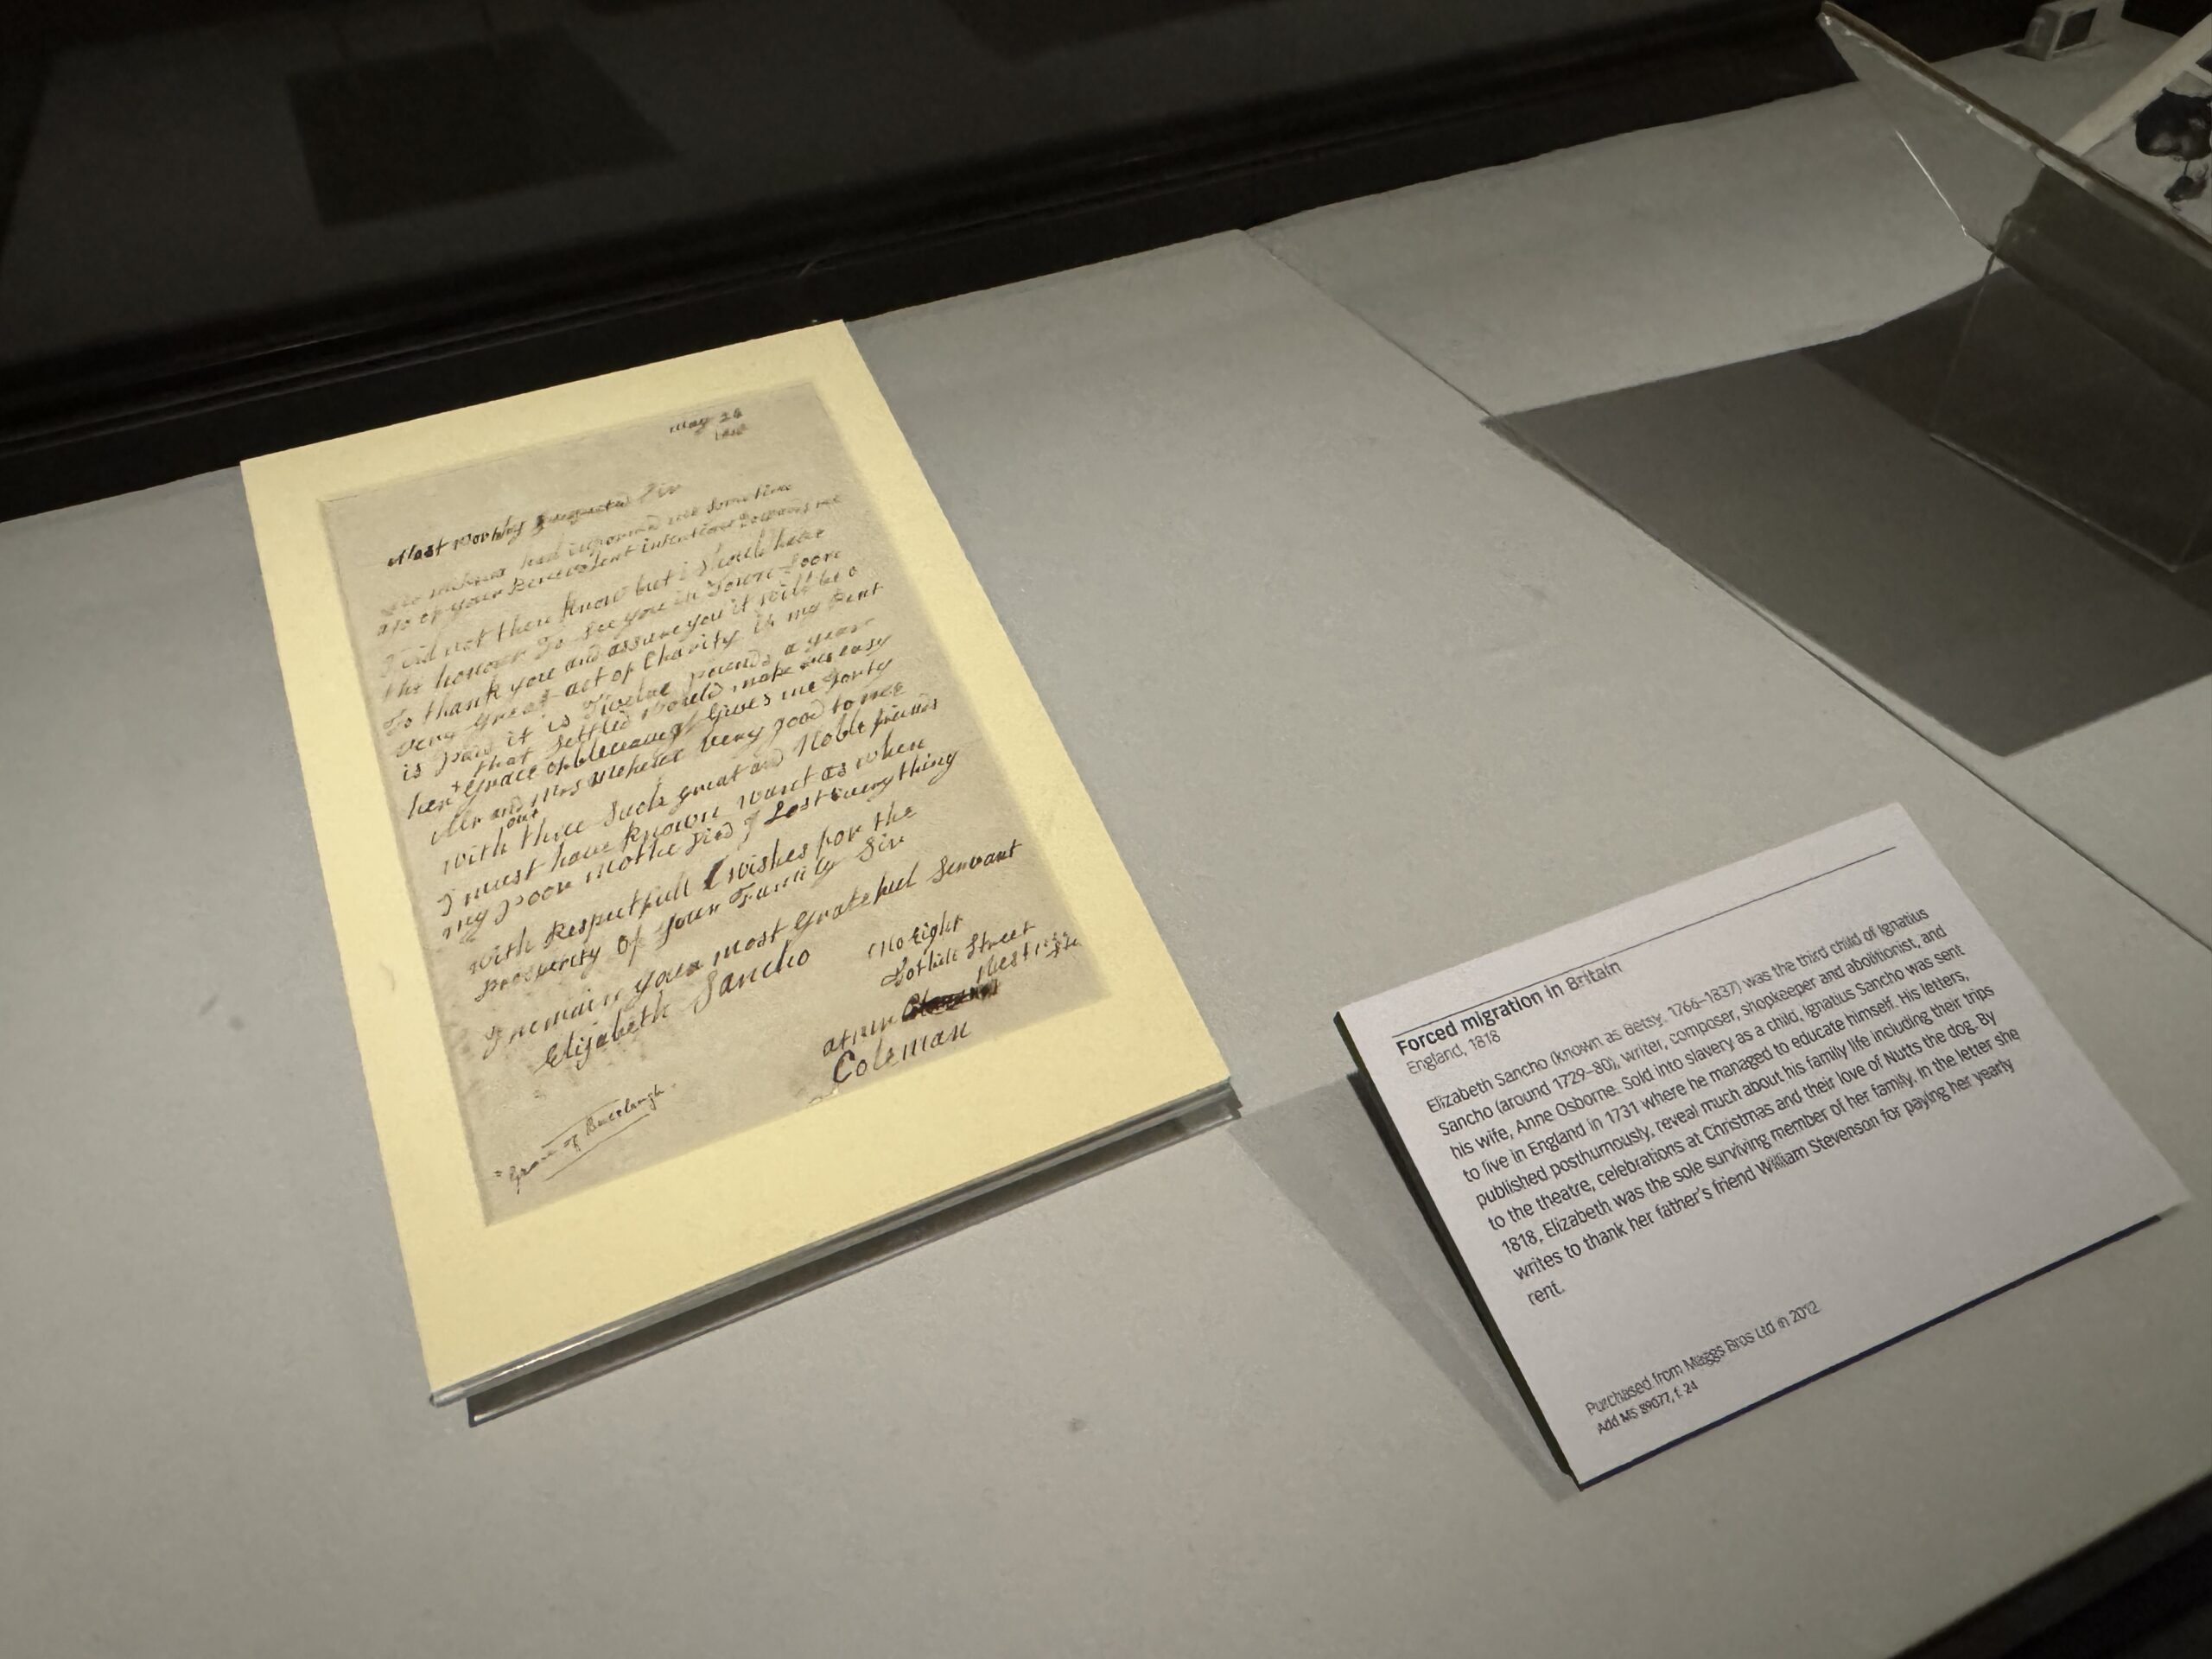 May 26
Most Worthy Sir
had informed me sometime
ago of your Benevolent intentions towards me
I did not then know but i should have
the honour To See you in Town Soon
To thank you and assure you it will be a
very great act of Charity if my Rent
is paid it is Twelve pounds a year
that Settled would make me easy
her Grace of Gives me forty
Mr and Mrs very good to me
without three Such great and Noble friends
I must have known want as when
my poor mothe died I Lost every thing
with Respectfull wishes for the
prosperity Of your Family Sir
I remain your most Grateful Servant
Elizabeth Sancho
No Eight
Street
Coleman
of Buccleugh
Forced migration in Britain
England, 1818
Elizabeth Sancho (known as Betsy, 1766–1837) was the third child of Ignatius
Sancho (around 1729–80), writer, composer, shopkeeper and abolitionist, and
his wife, Anne Osborne. Sold into slavery as a child, Ignatius Sancho was sent
to live in England in 1731 where he managed to educate himself. His letters,
published posthumously, reveal much about his family life including their trips
to the theatre, celebrations at Christmas and their love of Nutts the dog. By
1818, Elizabeth was the sole surviving member of her family. In the letter she
writes to thank her father's friend William Stevenson for paying her yearly
rent.
Purchased from Maggs Bros Ltd in 2012
Add MS 89077, f. 24